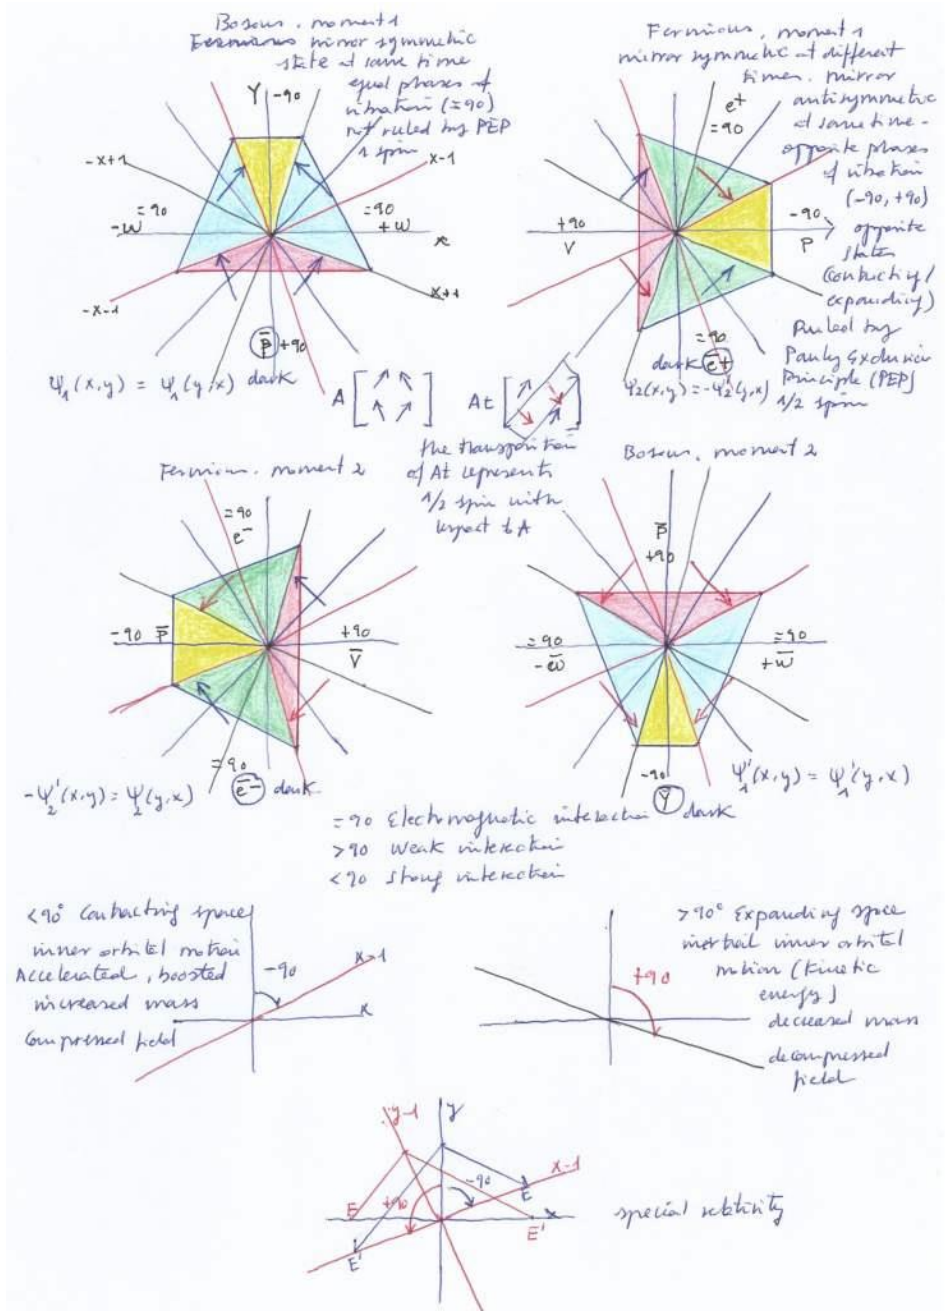 Bosons. moment 1
Fermions mirror symmetric
state at same time
equal phases of
vibration (=90)
not ruled by PEP
1 spin
Y
-90
-x+1
x-1
=90
-W
=90
+W
x
-x-1
x+1
P̄
+90
Ψ1(x,y) = Ψ1(y,x) dark
Fermions, moment 1
mirror symmetric at different
times. mirror
antisymmetric
at same time -
opposite phases
of vibration
(-90, +90)
opposite
states
(contracting/
expanding)
Ruled by
Pauly Exclusion
Principle (PEP)
1/2 spin
e+
=90
+90
V
-90
P
=90
dark e+
Ψ2(x,y) = -Ψ2'(y,x)
A [ ]
At [ ]
the transposition
of At represents
1/2 spin with
respect to A
Fermions. moment 2
=90
e-
-90 P̄
+90
V̄
=90
e- dark
-Ψ2'(x,y) = Ψ2(y,x)
Bosons, moment 2
P̄
+90
=90
-W̄
=90
+W̄
-90
Ȳ
dark
Ψ1'(x,y) = Ψ1'(y,x)
=90 Electromagnetic interaction
>90 Weak interaction
<90 strong interaction
<90° Contracting space
inner orbital motion
Accelerated, boosted
increased mass
Compressed field
-90
x-1
x
>90° Expanding space
inertial inner orbital
motion (kinetic
energy)
decreased mass
decompressed
field
+90
y-1
y
x-1
+90
-90
E
E
x
E'
E'
special relativity